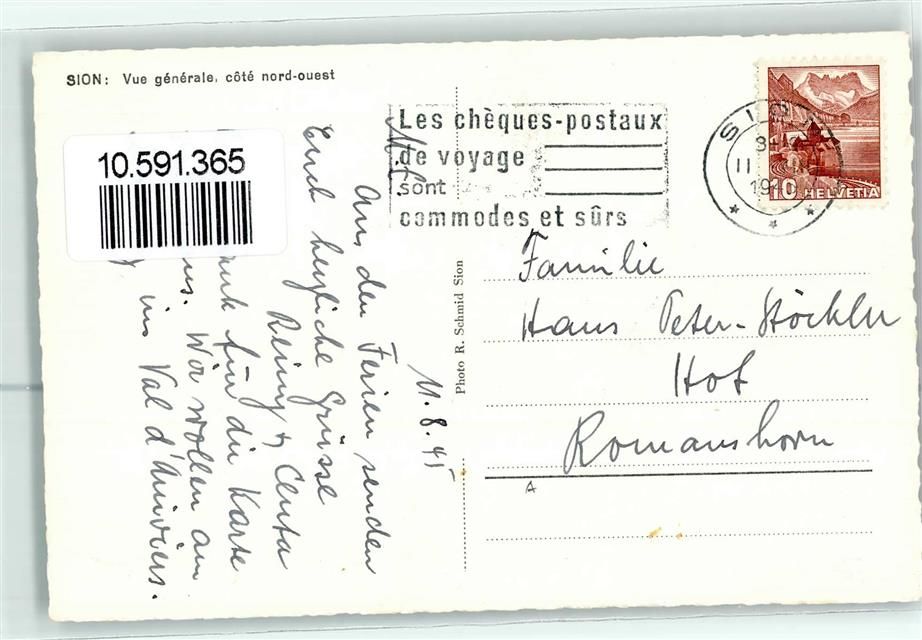 SION: Vue générale, côté nord-ouest
10.591.365
Les chèques-postaux
de voyage
sont
commodes et sûrs
SION
11
19
10 HELVETIA
Photo R. Schmid Sion
11.8.45
M. L.
Aus den Ferien senden
Euch herzliche Grüsse
Reiny & Centa
für die Karte
Wir wollen am
ins Val d'Anniviers.
Familie
Hans Peter-Stöckler
Hof
Romanshorn
A